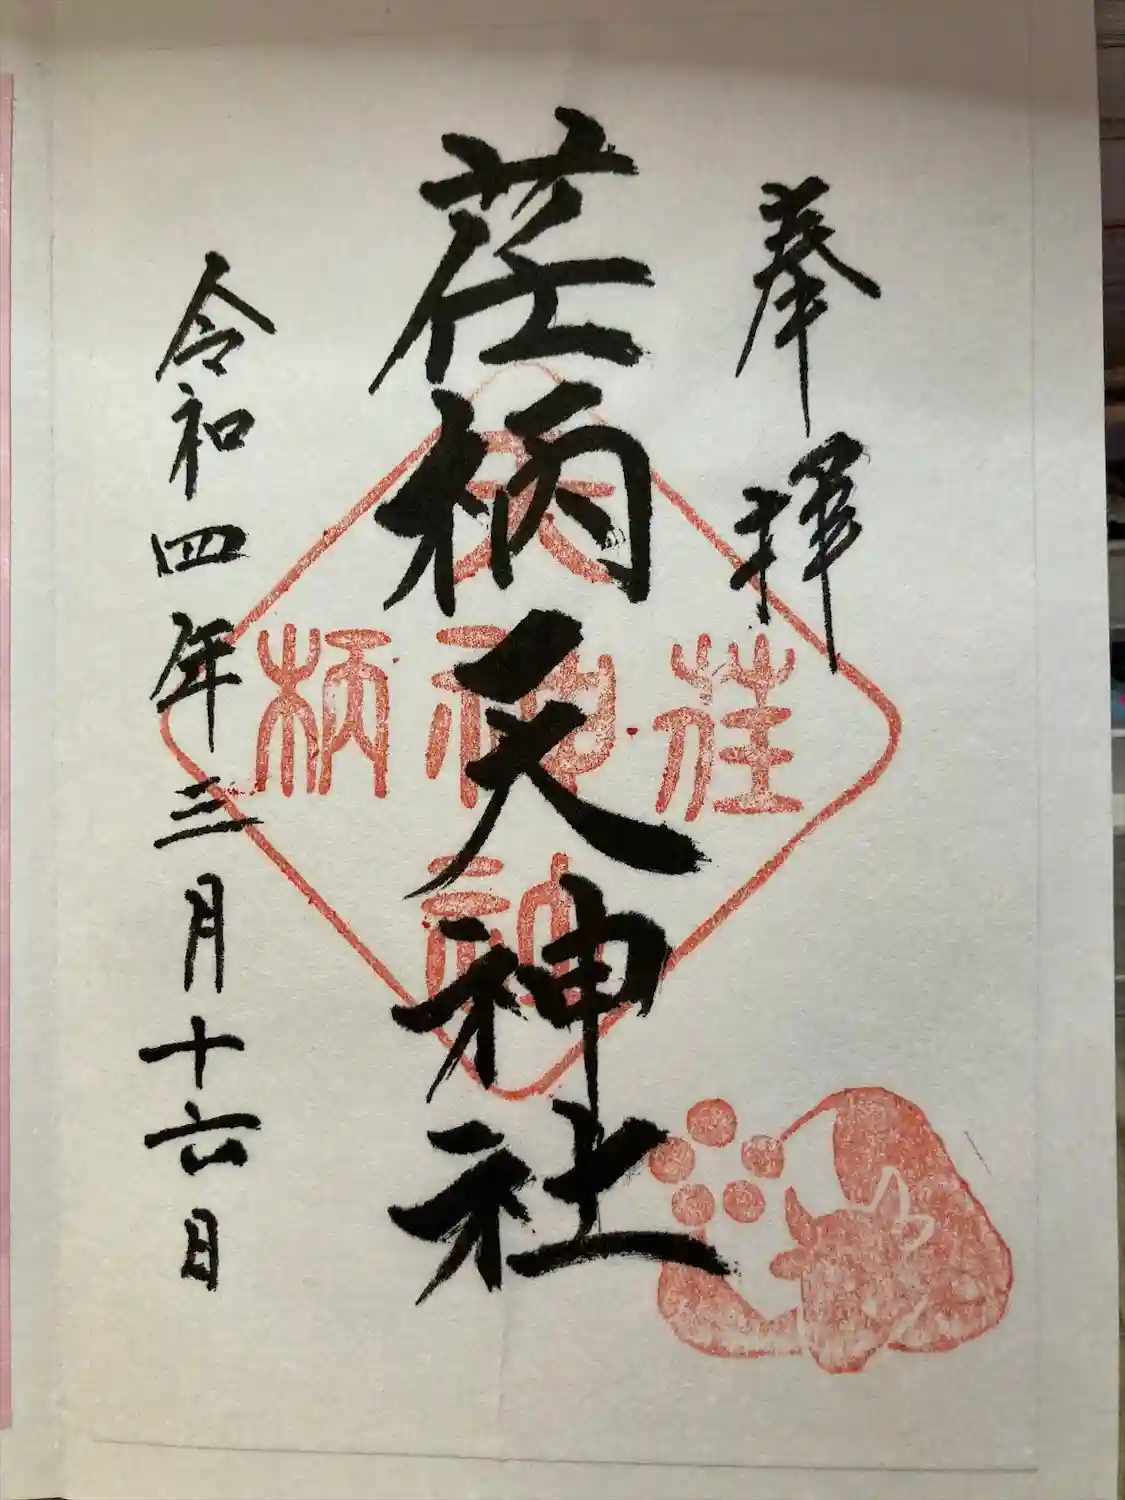 奉拝
荏柄天神社
令和四年三月十六日
天
荏神柄
神